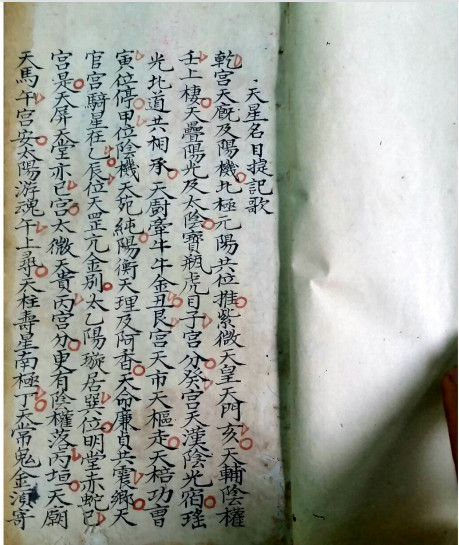 天星名目捉記歌
乾宮天厩及陽機北極元陽共位推紫微天皇天門亥天輔陰權
壬上棲天疊陽光及太陰寶瓶虎目子宮分癸宮天漢陰光宿瑤
光北道共相承天廚牽牛牛金丑艮宮天市天樞走天棓功曹
寅位停甲位陰機天苑純陽衡天理及阿香天命廉貞共震鄉天
官宮騎星在乙辰位天罡亢金別太乙陽璇居巽位明堂赤蛇巳
宮是天屏天堂亦巳宮太微天貴丙宮分更有陰權落丙垣天廟
天馬午宮安太陽游魂午上尋天柱壽星南極丁天常鬼金須寄